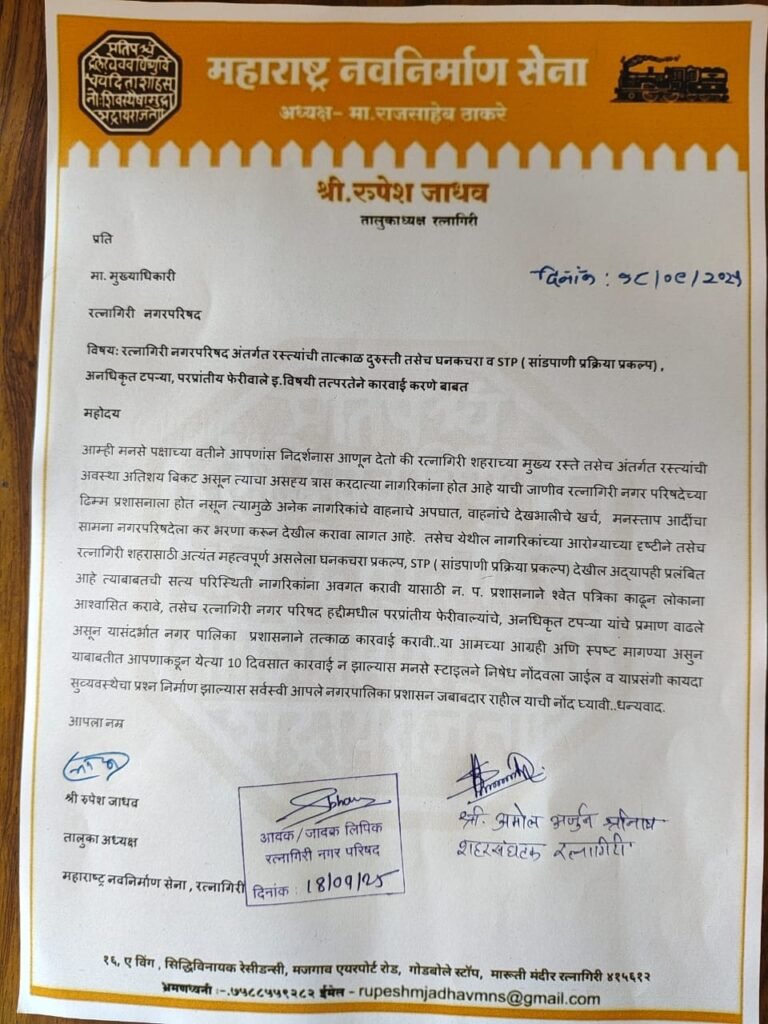 प्रतिपच्चं
द्रलेखेव वर्धिष्णुर्वि
श्ववंदिता शाहसू
नोः शिवस्यैषा मुद्रा
भद्राय राजते
महाराष्ट्र नवनिर्माण सेना
अध्यक्ष- मा.राजसाहेब ठाकरे
श्री.रुपेश जाधव
तालुकाध्यक्ष रत्नागिरी
प्रति
मा. मुख्याधिकारी
दिनांक : १८/०९/2025
रत्नागिरी नगरपरिषद
विषय: रत्नागिरी नगरपरिषद अंतर्गत रस्त्यांची तात्काळ दुरुस्ती तसेच घनकचरा व STP ( सांडपाणी प्रक्रिया प्रकल्प) ,
अनधिकृत टपऱ्या, परप्रांतीय फेरीवाले इ.विषयी तत्परतेने कारवाई करणे बाबत
महोदय
आम्ही मनसे पक्षाच्या वतीने आपणांस निदर्शनास आणून देतो की रत्नागिरी शहराच्या मुख्य रस्ते तसेच अंतर्गत रस्त्यांची
अवस्था अतिशय बिकट असून त्याचा असह्य त्रास करदात्या नागरिकांना होत आहे याची जाणीव रत्नागिरी नगर परिषदेच्या
ढिम्म प्रशासनाला होत नसून त्यामुळे अनेक नागरिकांचे वाहनाचे अपघात, वाहनांचे देखभालीचे खर्च, मनस्ताप आदींचा
सामना नगरपरिषदेला कर भरणा करून देखील करावा लागत आहे. तसेच येथील नागरिकांच्या आरोग्याच्या दृष्टीने तसेच
रत्नागिरी शहरासाठी अत्यंत महत्वपूर्ण असलेला घनकचरा प्रकल्प, STP ( सांडपाणी प्रक्रिया प्रकल्प) देखील अद्यापही प्रलंबित
आहे त्याबाबतची सत्य परिस्थिती नागरिकांना अवगत करावी यासाठी न. प. प्रशासनाने श्वेत पत्रिका काढून लोकाना
आश्वासित करावे, तसेच रत्नागिरी नगर परिषद हद्दीमधील परप्रांतीय फेरीवाल्यांचे, अनधिकृत टपऱ्या यांचे प्रमाण वाढले
असून यासंदर्भात नगर पालिका प्रशासनाने तत्काळ कारवाई करावी..या आमच्या आग्रही आणि स्पष्ट मागण्या असुन
याबाबतीत आपणाकडून येत्या 10 दिवसात कारवाई न झाल्यास मनसे स्टाइलने निषेध नोंदवला जाईल व याप्रसंगी कायदा
सुव्यवस्थेचा प्रश्न निर्माण झाल्यास सर्वस्वी आपले नगरपालिका प्रशासन जबाबदार राहील याची नोंद घ्यावी..धन्यवाद.
आपला नम्र
श्री रुपेश जाधव
तालुका अध्यक्ष
महाराष्ट्र नवनिर्माण सेना , रत्नागिरी
आवक/जावक लिपिक
रत्नागिरी नगर परिषद
दिनांक : 18/09/25
श्री. अमोल अर्जुन श्रीनाथ
शहरसंघटक रत्नागिरी
१६, ए विंग , सिद्धिविनायक रेसीडन्सी, मजगाव एयरपोर्ट रोड, गोडबोले स्टॉप, मारूती मंदीर रत्नागिरी ४१५६१२
भ्रमणध्वनी :-.७५८८५५९२८२ ईमेल - rupeshmjadhavmns@gmail.com